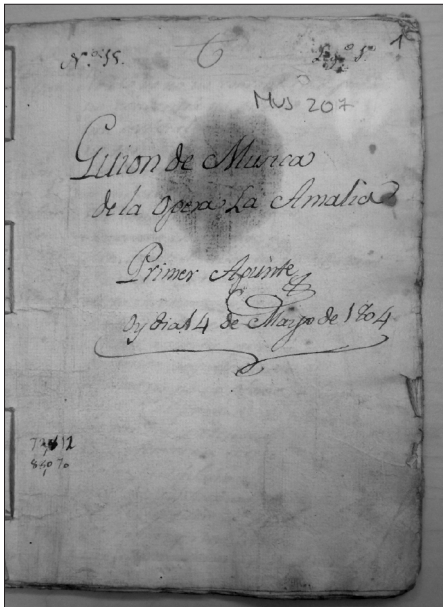 N.º 55.
6
1
Mus 207
Guion de Musica
de la Opera La Amalia
Primer Apunte
Oy dia 14 de Mayo de 1804